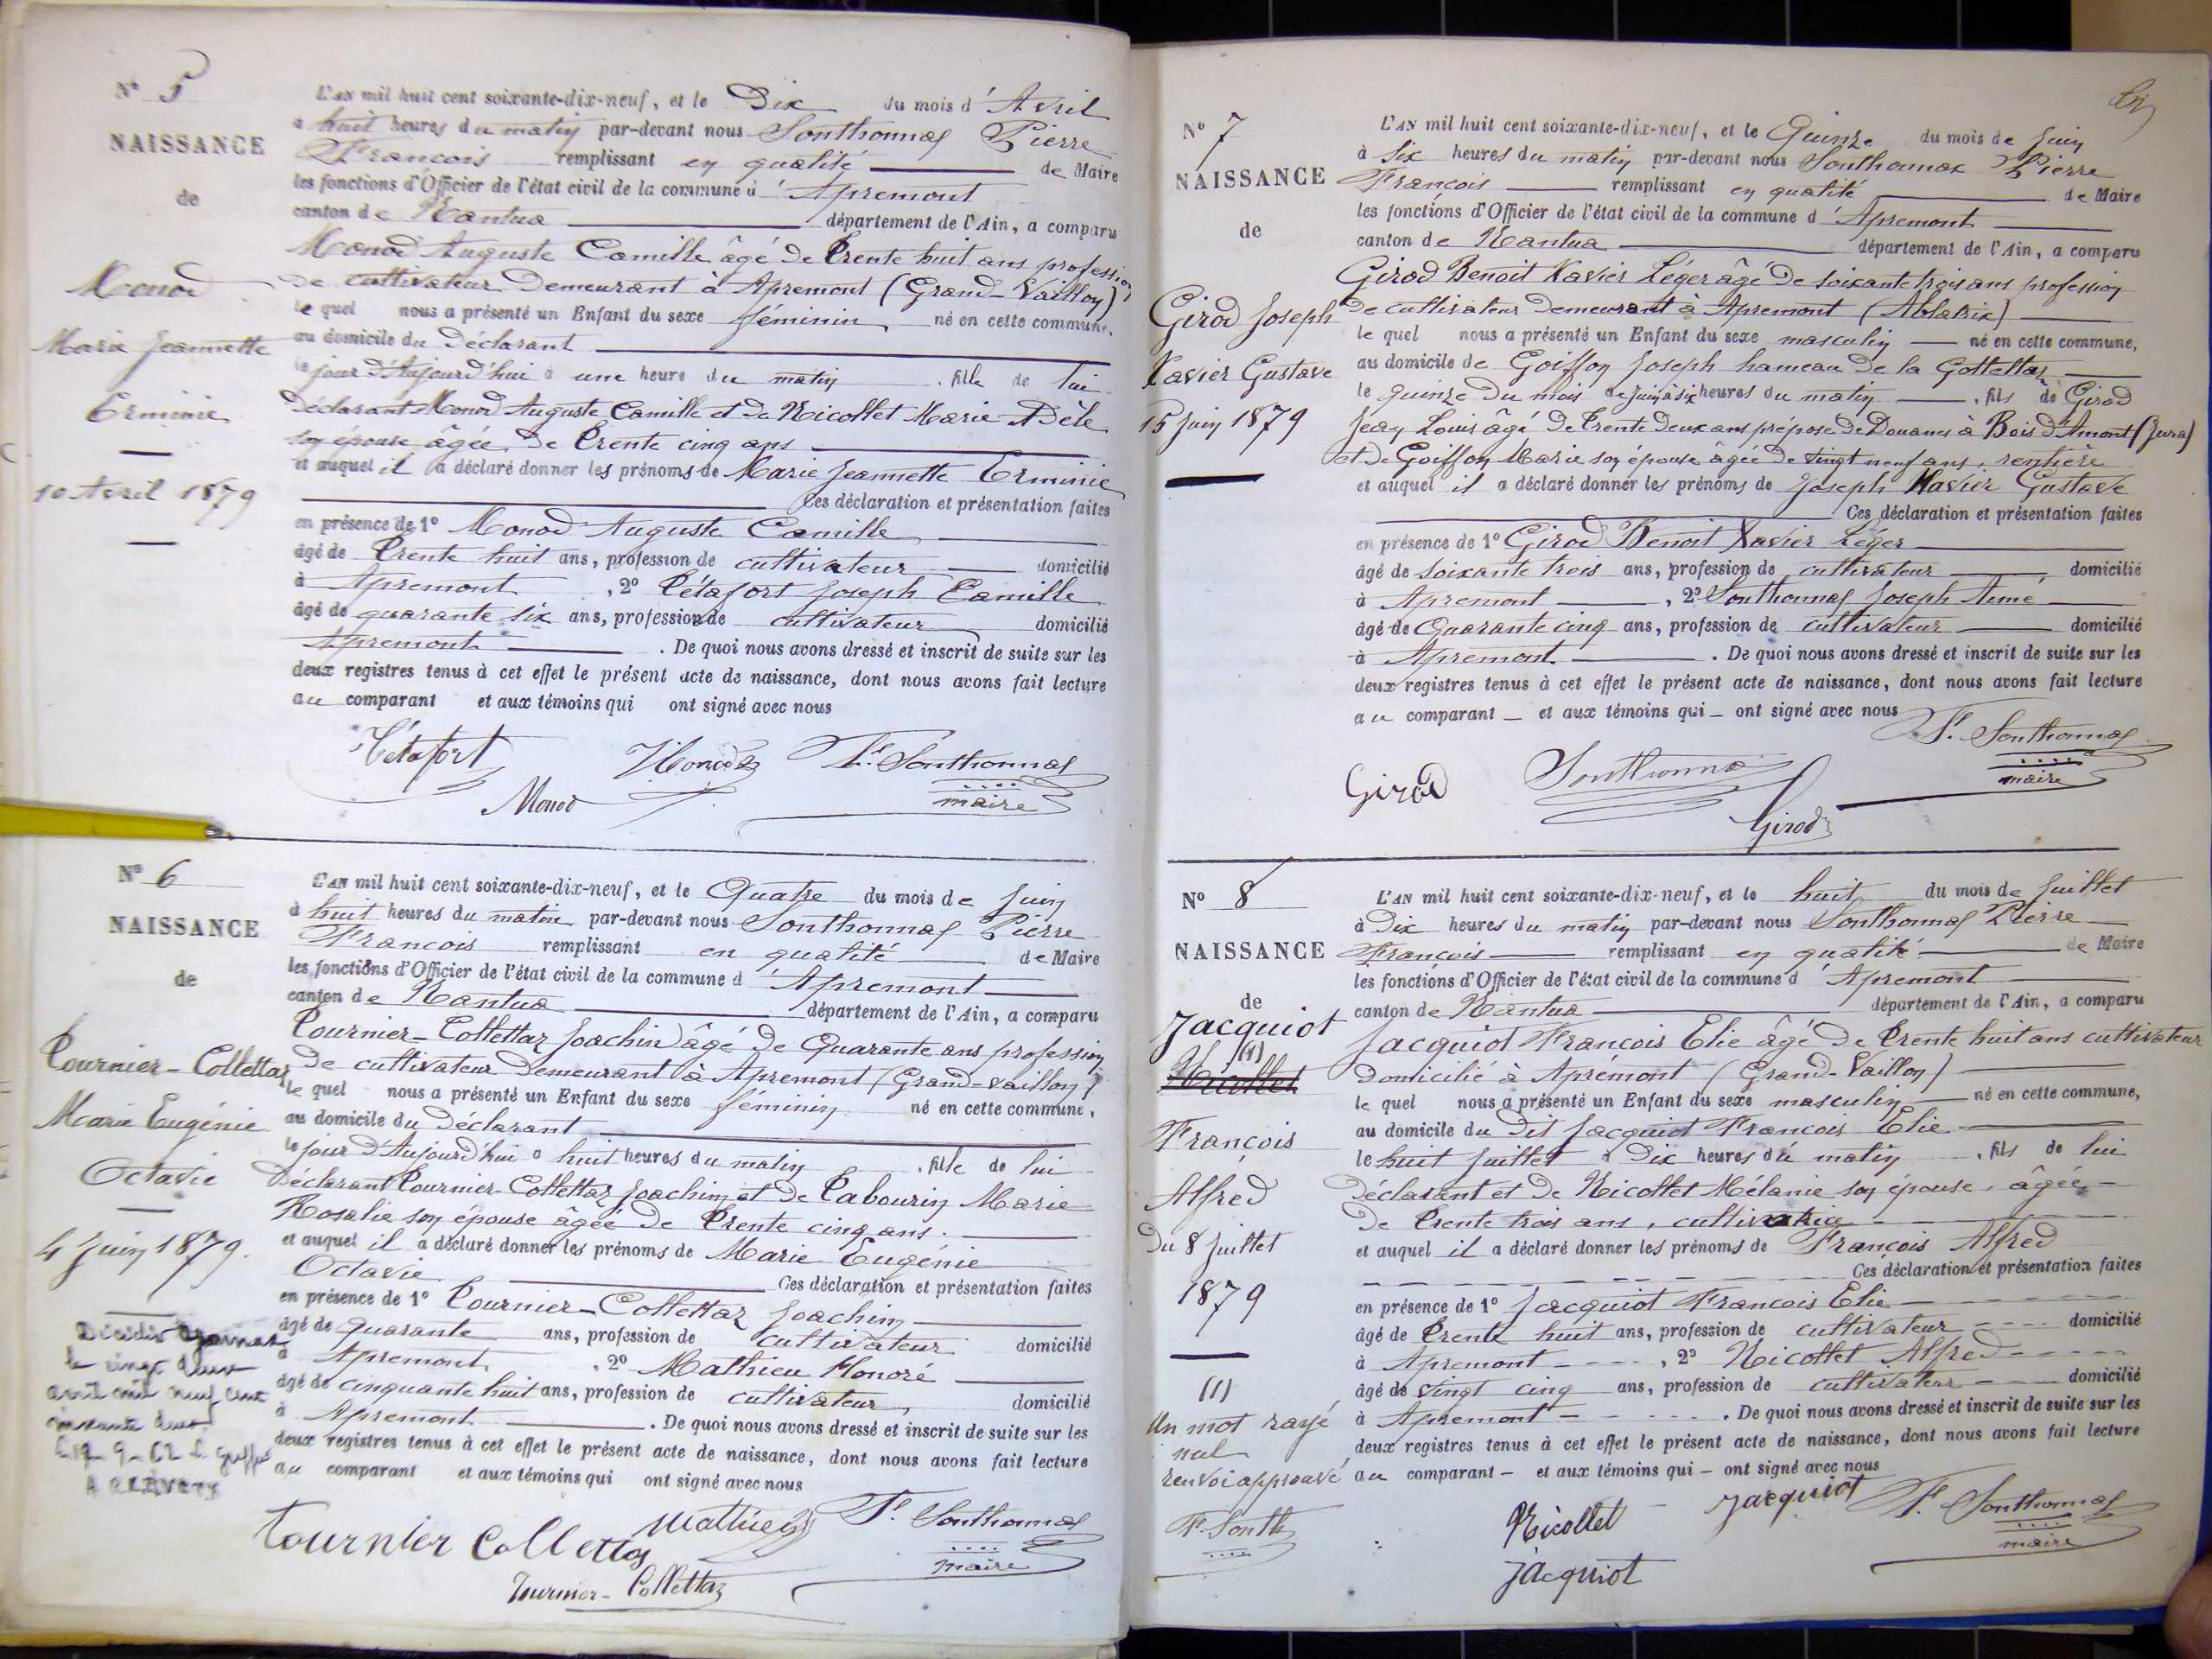 Nº 5
NAISSANCE
de
Monod
Marie Jeannette
Erminie
10 Avril 1879
L'AN mil huit cent soixante-dix-neuf, et le Dix du mois d'Avril
à huit heures du matin par-devant nous Sonthonnas Pierre
François remplissant en qualité de Maire
les fonctions d'Officier de l'état civil de la commune d'Apremont
canton de Nantua département de l'Ain, a comparu
Monod Auguste Camille âgé de Trente huit ans profession
de cultivateur Demeurant à Apremont (Grand-Vaillon)
le quel nous a présenté un Enfant du sexe féminin né en cette commune,
au domicile du Déclarant
le jour d'Aujourd'hui à une heure du matin, fille de lui
Déclarant Monod Auguste Camille et de Nicollet Marie Adèle
son épouse âgée de Trente cinq ans
et auquel il a déclaré donner les prénoms de Marie Jeannette Erminie
Ces déclaration et présentation faites
en présence de 1º Monod Auguste Camille
âgé de Trente huit ans, profession de cultivateur domicilié
à Apremont, 2º Tétafort Joseph Camille
âgé de quarante six ans, profession de cultivateur domicilié
Apremont. De quoi nous avons dressé et inscrit de suite sur les
deux registres tenus à cet effet le présent acte de naissance, dont nous avons fait lecture
au comparant et aux témoins qui ont signé avec nous
Tétafort Monod F. Sonthonnas
Monod maire
Nº 6
NAISSANCE
de
Tournier-Collettaz
Marie Eugénie
Octavie
4 Juin 1879.
le vingt deux
avril mil neuf cent
soixante deux.
L'AN mil huit cent soixante-dix-neuf, et le Quatre du mois de Juin
à huit heures du matin par-devant nous Sonthonnas Pierre
François remplissant en qualité de Maire
les fonctions d'Officier de l'état civil de la commune d'Apremont
canton de Nantua département de l'Ain, a comparu
Tournier-Collettaz Joachin âgé de Quarante ans profession
de cultivateur Demeurant à Apremont (Grand-Vaillon)
le quel nous a présenté un Enfant du sexe féminin né en cette commune,
au domicile du Déclarant
le jour d'Aujourd'hui à huit heures du matin, fille de lui
Déclarant Tournier-Collettaz Joachin et de Tabourin Marie
Rosalie son épouse âgée de Trente cinq ans.
et auquel il a déclaré donner les prénoms de Marie Eugénie
Octavie Ces déclaration et présentation faites
en présence de 1º Tournier-Collettaz Joachin
âgé de quarante ans, profession de cultivateur domicilié
à Apremont, 2º Mathieu Honoré
âgé de cinquante huit ans, profession de cultivateur domicilié
à Apremont. De quoi nous avons dressé et inscrit de suite sur les
deux registres tenus à cet effet le présent acte de naissance, dont nous avons fait lecture
au comparant et aux témoins qui ont signé avec nous
Tournier Collettaz Mathieu F. Sonthonnas
Tournier-Collettaz maire
Nº 7
NAISSANCE
de
Girod Joseph
Xavier Gustave
15 Juin 1879
L'AN mil huit cent soixante-dix-neuf, et le Quinze du mois de Juin
à six heures du matin par-devant nous Sonthonnax Pierre
François remplissant en qualité de Maire
les fonctions d'Officier de l'état civil de la commune d'Apremont
canton de Nantua département de l'Ain, a comparu
Girod Benoit Xavier Léger âgé de soixante trois ans profession
de cultivateur demeurant à Apremont (Ablatrix)
le quel nous a présenté un Enfant du sexe masculin né en cette commune,
au domicile de Goiffon Joseph hameau de la Gottettaz
le quinze du mois de juin à six heures du matin, fils de Girod
Jean Louis âgé de Trente deux ans préposé de Douanes à Bois d'Amont (Jura)
et de Goiffon Marie son épouse âgée de vingt neuf ans, rentière
et auquel il a déclaré donner les prénoms de Joseph Xavier Gustave
Ces déclaration et présentation faites
en présence de 1º Girod Benoit Xavier Léger
âgé de soixante trois ans, profession de cultivateur domicilié
à Apremont, 2º Sonthonnas Joseph Aimé
âgé de Quarante cinq ans, profession de cultivateur domicilié
à Apremont. De quoi nous avons dressé et inscrit de suite sur les
deux registres tenus à cet effet le présent acte de naissance, dont nous avons fait lecture
au comparant et aux témoins qui ont signé avec nous
F. Sonthonnas
maire
Girod Sonthonnas
Girod
Nº 8
NAISSANCE
de
Jacquiot
(1)
Nicollet
François
Alfred
Du 8 Juillet
1879
(1)
Un mot rayé
nul
renvoi approuvé
F. Sonth
L'AN mil huit cent soixante-dix-neuf, et le huit du mois de Juillet
à Dix heures du matin par-devant nous Sonthonnas Pierre
François remplissant en qualité de Maire
les fonctions d'Officier de l'état civil de la commune d'Apremont
canton de Nantua département de l'Ain, a comparu
Jacquiot François Elie âgé de Trente huit ans cultivateur
Domicilié à Apremont (Grand-Vaillon)
le quel nous a présenté un Enfant du sexe masculin né en cette commune,
au domicile du dit Jacquiot François Elie
le huit Juillet à Dix heures du matin, fils de lui
Déclarant et de Nicollet Mélanie son épouse, âgée
de Trente trois ans, cultivatrice
et auquel il a déclaré donner les prénoms de François Alfred
Ces déclaration et présentation faites
en présence de 1º Jacquiot François Elie
âgé de Trente huit ans, profession de cultivateur domicilié
à Apremont, 2º Nicollet Alfred
âgé de vingt cinq ans, profession de cultivateur domicilié
à Apremont. De quoi nous avons dressé et inscrit de suite sur les
deux registres tenus à cet effet le présent acte de naissance, dont nous avons fait lecture
au comparant et aux témoins qui ont signé avec nous
Nicollet Jacquiot F. Sonthonnas
Jacquiot maire